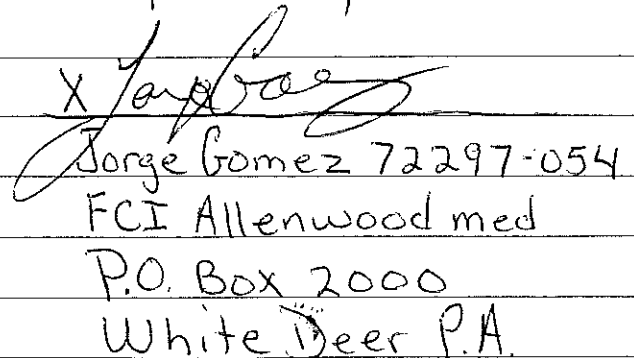 X
Jorge Gomez 72297-054
FCI Allenwood med
P.O. Box 2000
White Deer P.A.